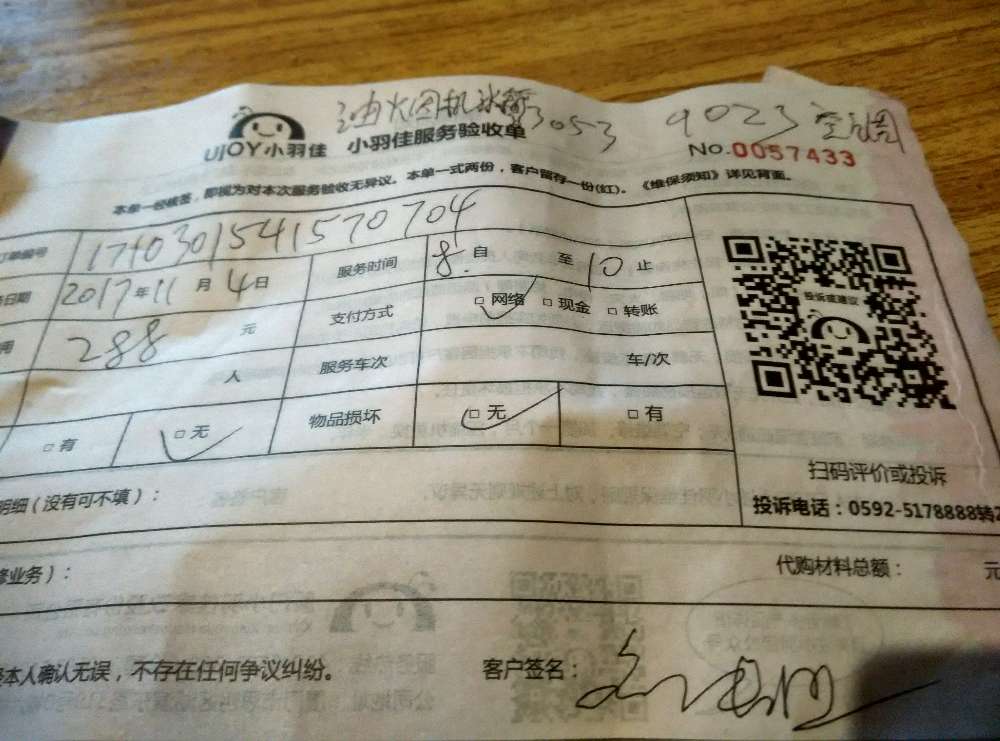 油火因机冰箱 3053 9023 空调
UJOY小羽佳 小羽佳服务验收单
No.0057433
本单一经核签，即视为对本次服务验收无异议。本单一式两份，客户留存一份(红)。《维保须知》详见背面。
订单编号 1710301541570704
日期 2017年11月4日 服务时间 8.自 至10止
用 288 元 支付方式 □网络 □现金 □转账
人 服务车次 车/次
□有 □无 物品损坏 □无 □有
投诉或建议
扫码评价或投诉
投诉电话：0592-5178888转2
明细（没有可不填）：
修业务）： 代购材料总额： 元
经本人确认无误，不存在任何争议纠纷。 客户签名：